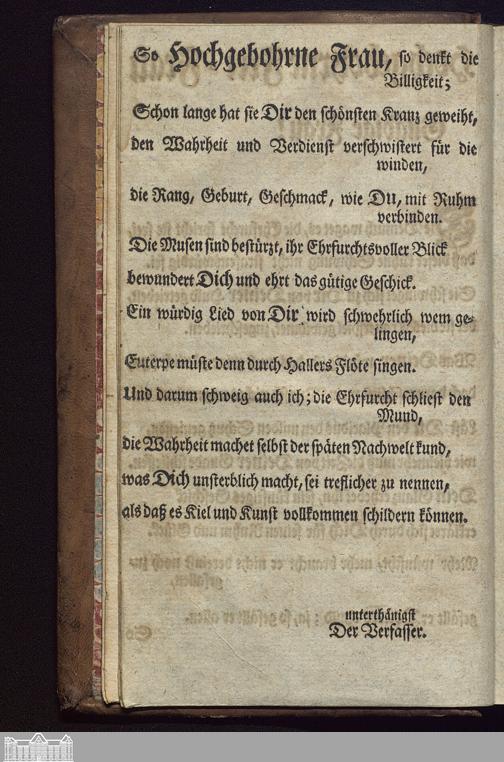 So Hochgebohrne Frau, so denkt die
Billigkeit;
Schon lange hat sie Dir den schönsten Kranz geweiht,
den Wahrheit und Verdienst verschwistert für die
winden,
die Rang, Geburt, Geschmack, wie Du, mit Ruhm
verbinden.
Die Musen sind bestürzt, ihr Ehrfurchtsvoller Blick
bewundert Dich und ehrt das gütige Geschick.
Ein würdig Lied von Dir wird schwehrlich wem ge-
lingen,
Euterpe müste denn durch Hallers Flöte singen.
Und darum schweig auch ich; die Ehrfurcht schliest den
Mund,
die Wahrheit machet selbst der späten Nachwelt kund,
was Dich unsterblich macht, sei treflicher zu nennen,
als daß es Kiel und Kunst vollkommen schildern können.
unterthänigst
Der Verfasser.